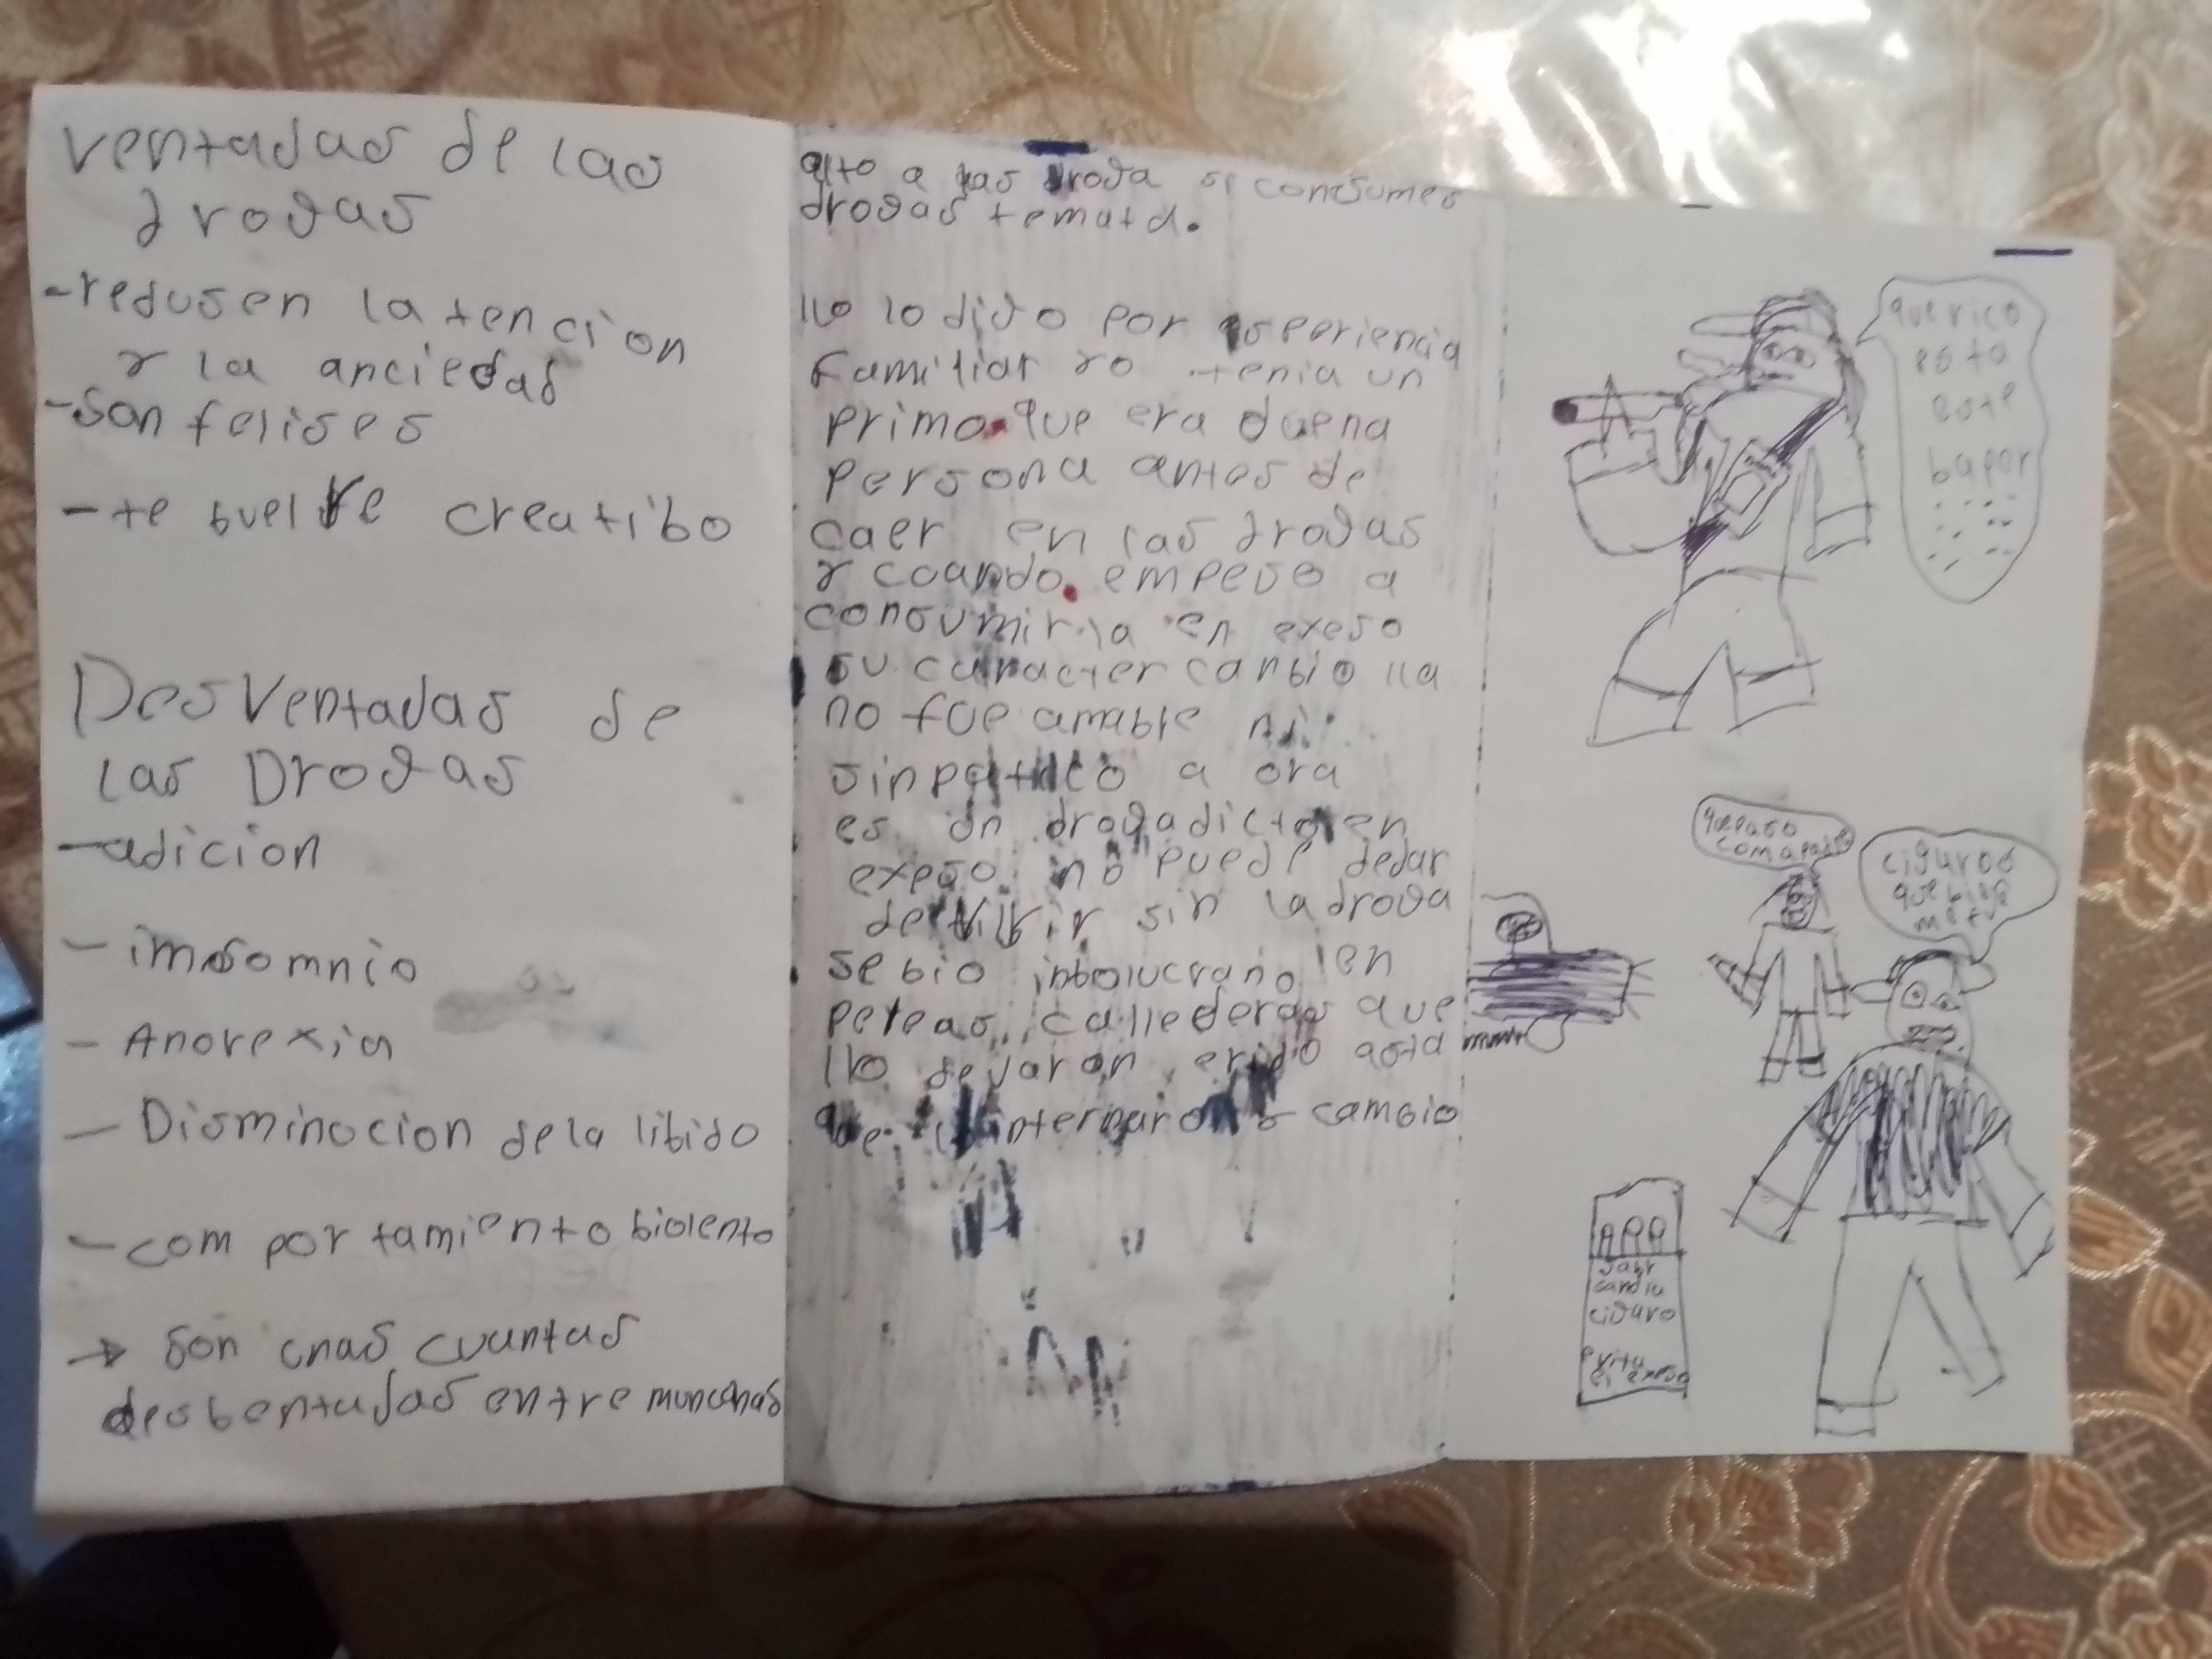 ventadas de las
drogas
-redusen la tencion
y la anciedad
-son felises
-te buelve creatibo
Desventadas de
las Drogas
-adicion
- imsomnio
- Anorexia
- Disminocion de la libido
- com por tamiento biolento
→ son unas cuantas
desbentajas entre munchas
alto a las droga si consumes
drogas te mata.
llo lo digo por esperiencia
familiar yo tenia un
primo que era buena
persona antes de
caer en las drogas
y cuando empeso a
consumirla en exeso
su caracter canbio lla
no fue amable ni
sinpatico a ora
es un drogadicto en
exeso no puede dedar
de vivir sin la droga
se bio inbolucrano en
peleas callederas que
llo dejaron erido asta
que internaron cambio
que rico
esta
este
bapor
que paso
cigaros
que
APA
sabr
sandia
cigaro
evita
el exeso